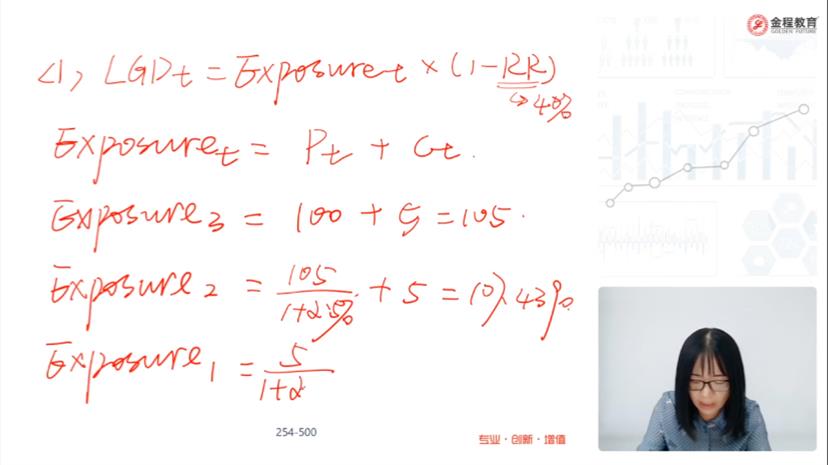 金程教育
GOLDEN FUTURE
<1> LGDt = Exposuret × (1-RR)
↳ 40%
Exposuret = Pt + Ct.
Exposure3 = 100 + 5 = 105.
Exposure2 = 105/1+2.5% + 5 = 107.43%.
Exposure1 = 5/1+2.
254-500
专业·创新·增值